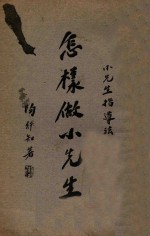 小先生指導法
怎樣做小先生
陶行知著